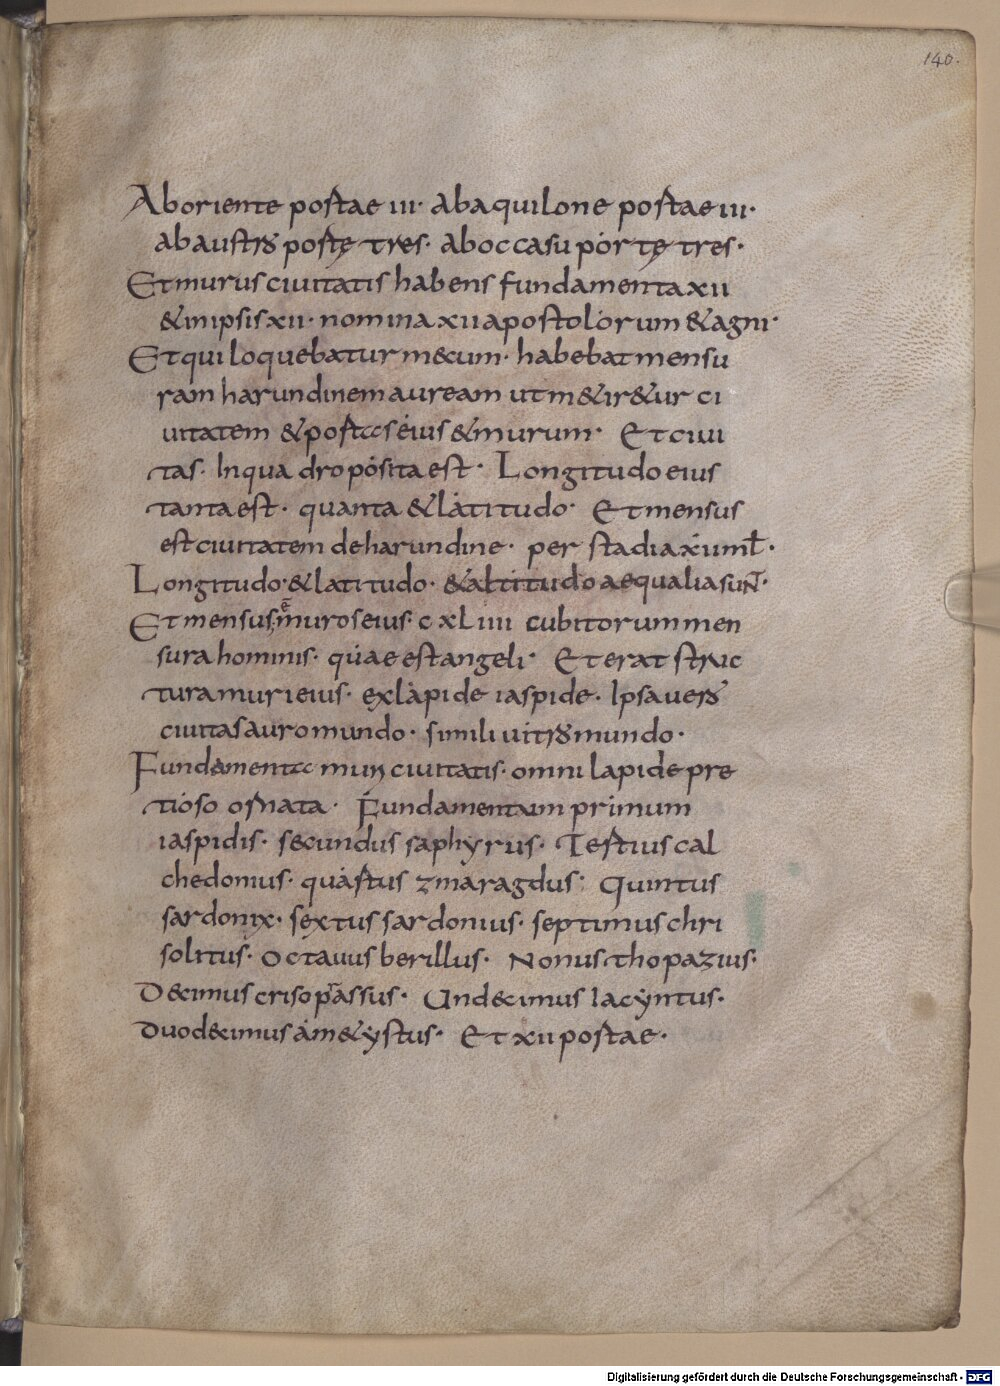 140.
Ab oriente portae iii· ab aquilone portae iii·
ab austro portę tres· ab occasu portę tres·
Et murus ciuitatis habens fundamenta xii
& in ipsis xii· nomina xii apostolorum & agni·
Et qui loquebatur mecum· habebat mensu
ram harundinem auream ut m&ir&ur ci
uitatem & portas eius & murum· Et ciui
tas· In quadro posita est· Longitudo eius
tanta est· quanta & latitudo· Et mensus
est ciuitatem de harundine· per stadia xii mł·
Longitudo·& latitudo· & altitudo aequalia sunt·
Et mensus ē muros eius· cxliiii cubitorum men
sura hominis· quae est angeli· Et erat struc
tura muri eius· ex lapide iaspide· Ipsa uero
ciuitas auro mundo· simili uitro mundo·
Fundamenta muri ciuitatis· omni lapide pre
tioso ornata· Fundamentum primum
iaspidis· secundus saphyrus· Tertius cal
chedonius· quartus zmaragdus· Quintus
sardonix· sextus sardonius· septimus chri
solitus· Octauus berillus· Nonus thopazius·
Decimus crisoprassus· Undecimus Iacyntus·
Duodecimus am&ystus· Et xii portae·
Digitalisierung gefördert durch die Deutsche Forschungsgemeinschaft - DFG